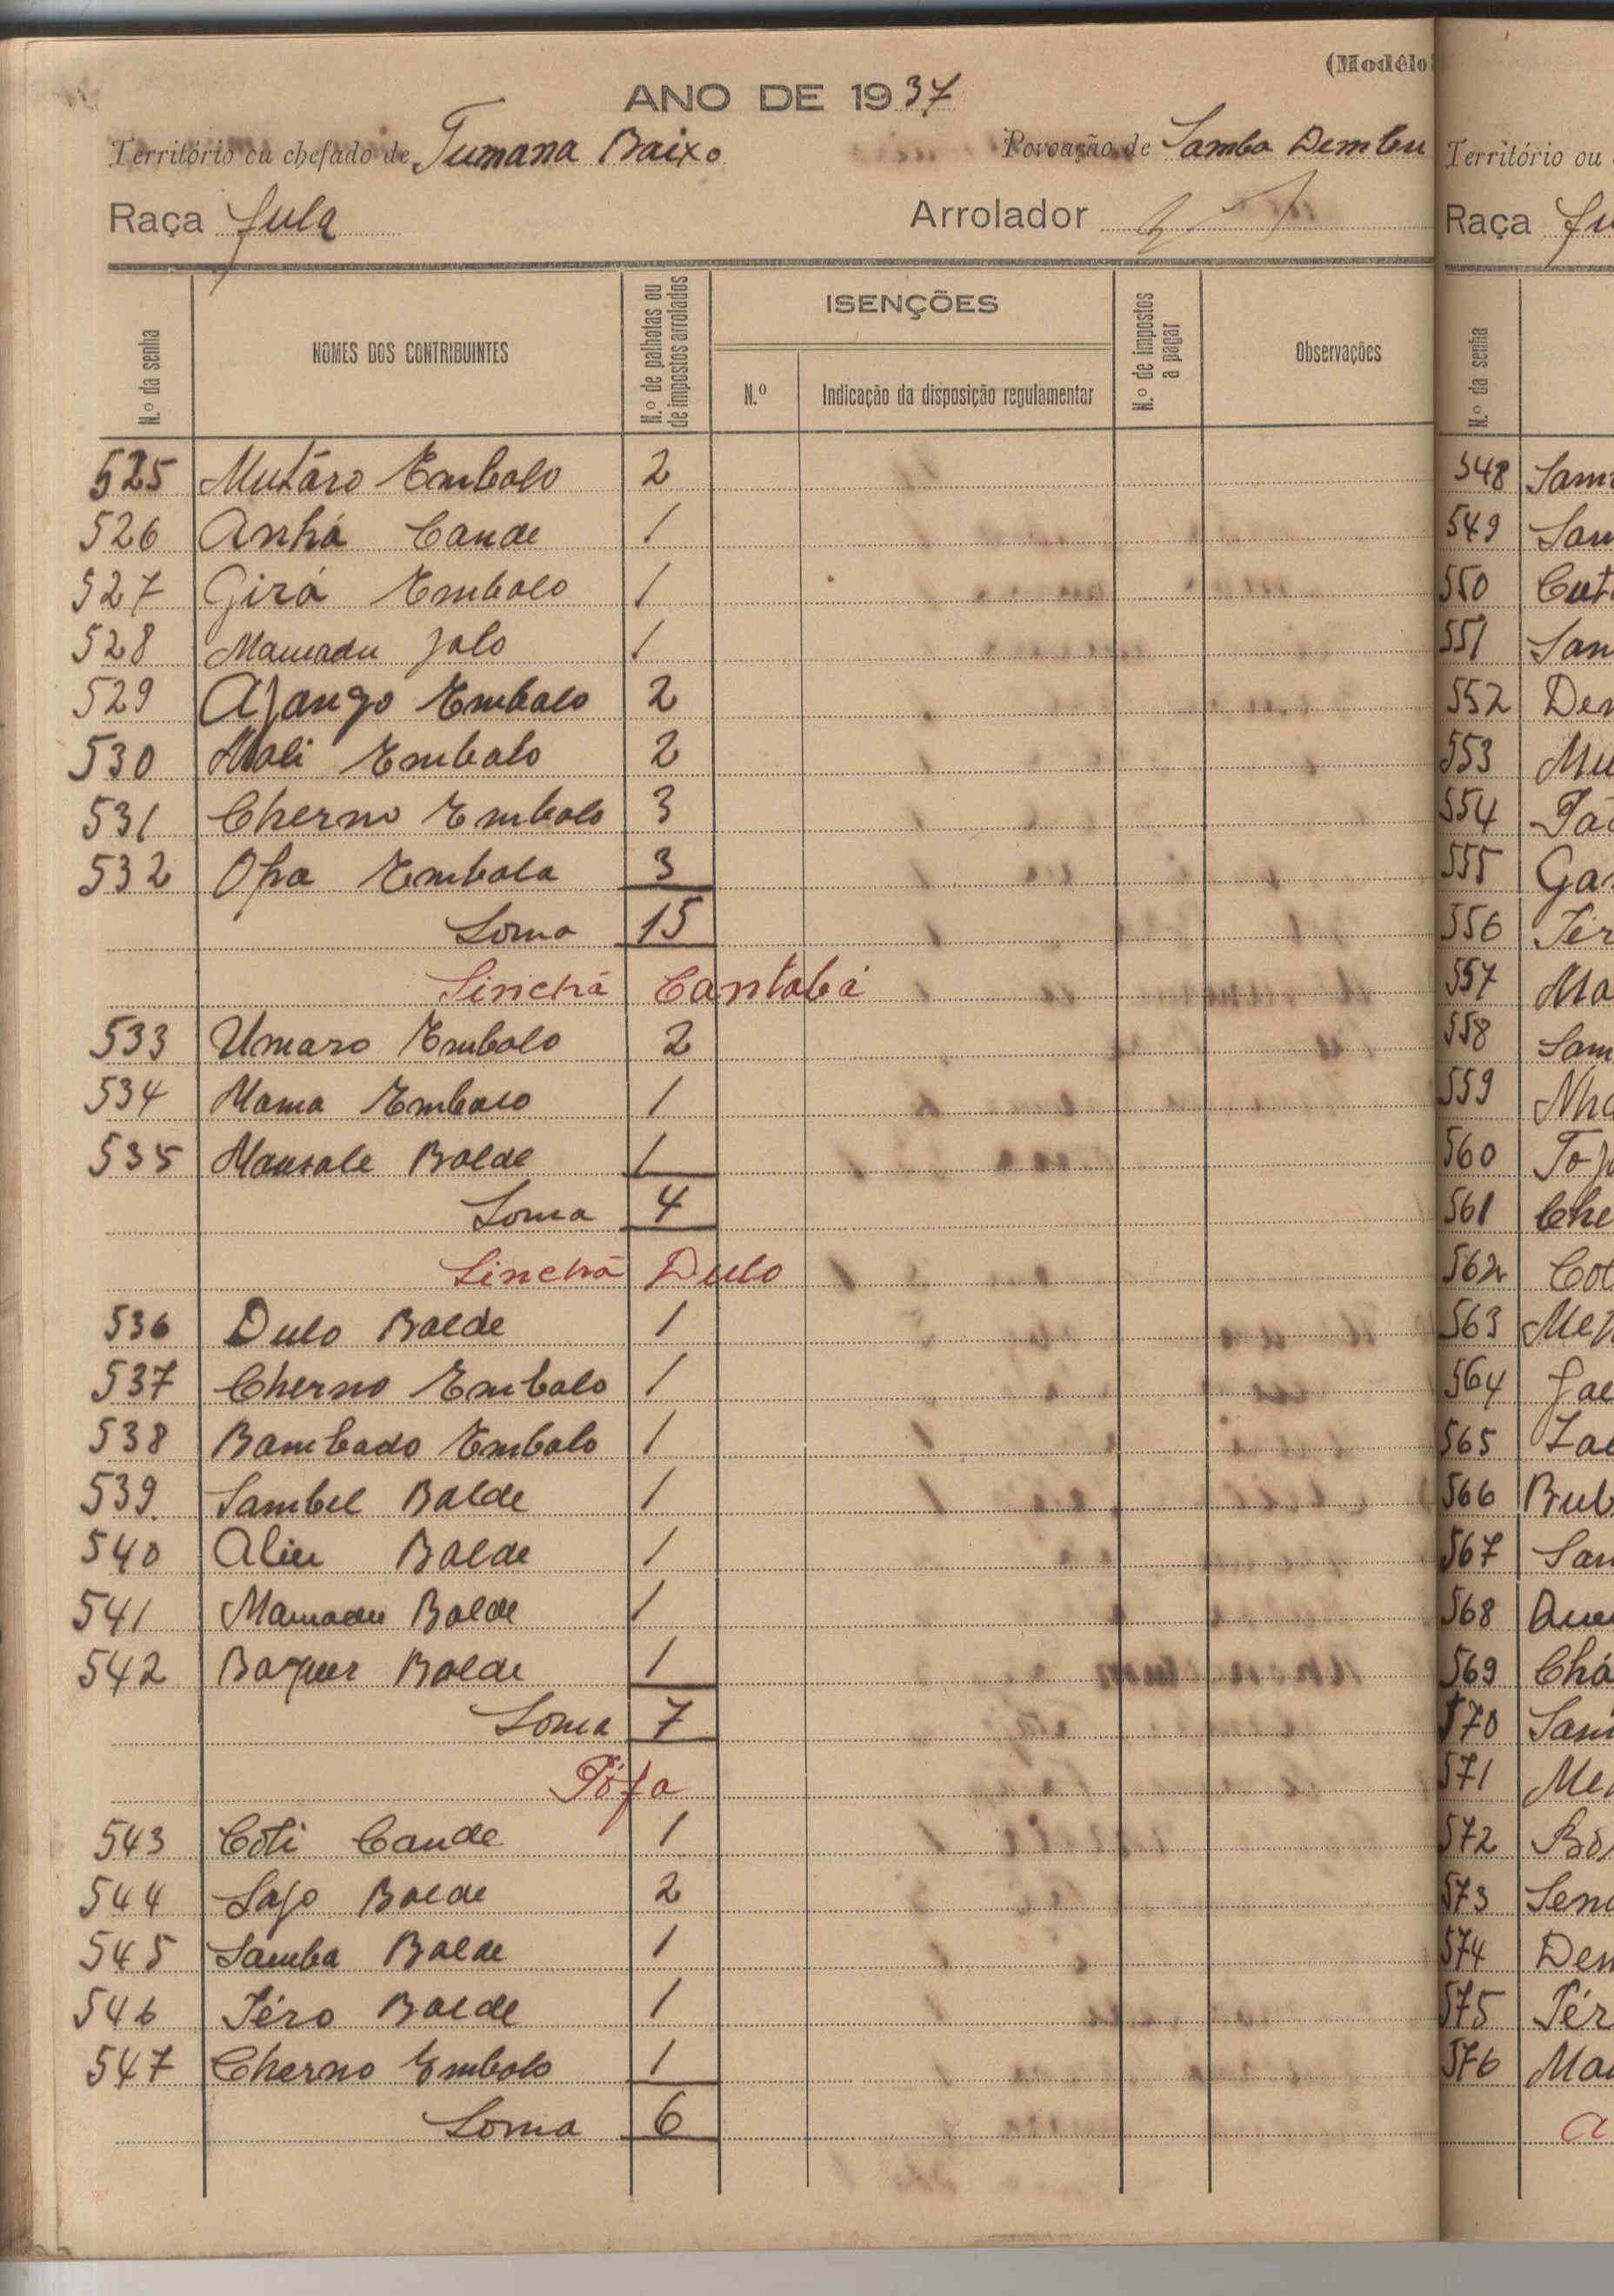 (Modêlo
ANO DE 1937
Território ou chefado de Tumana Baixo Povoação de Samba Dembu
Raça fula Arrolador
N.º da senha NOMES DOS CONTRIBUINTES N.º de palhotas ou de impostos arrolados ISENÇÕES N.º Indicação da disposição regulamentar N.º de impostos a pagar Observações
525 Mutáro Embalo 2
526 Anhá Cande 1
527 Girá Embalo 1
528 Mamadu Jalo 1
529 Ajango Embalo 2
530 Mali Embalo 2
531 Cherno Embalo 3
532 Opa Embalo 3
Soma 15
Sinchã Cantabá
533 Umaro Embalo 2
534 Mama Embalo 1
535 Mansale Balde 1
Soma 4
Sinchã Dulo
536 Dulo Balde 1
537 Cherno Embalo 1
538 Bambado Embalo 1
539 Sambel Balde 1
540 Aliu Balde 1
541 Mamadu Balde 1
542 Baquer Balde 1
Soma 7
543 Coti Cande 1
544 Sajo Balde 2
545 Samba Balde 1
546 Téro Balde 1
547 Cherno Embalo 1
Soma 6
Território ou
Raça fu
N.º da senha
548 Sam
549 Sam
550 Cut
551 San
552 Dem
553 Mu
554
555 Ga
556 Tér
557 Ma
558 Sam
559 Nha
560
561 Che
562 Cot
563
564
565
566 Bub
567 San
568
569 Chá
570
571
572
573
574 Dem
575 Tér
576 Ma